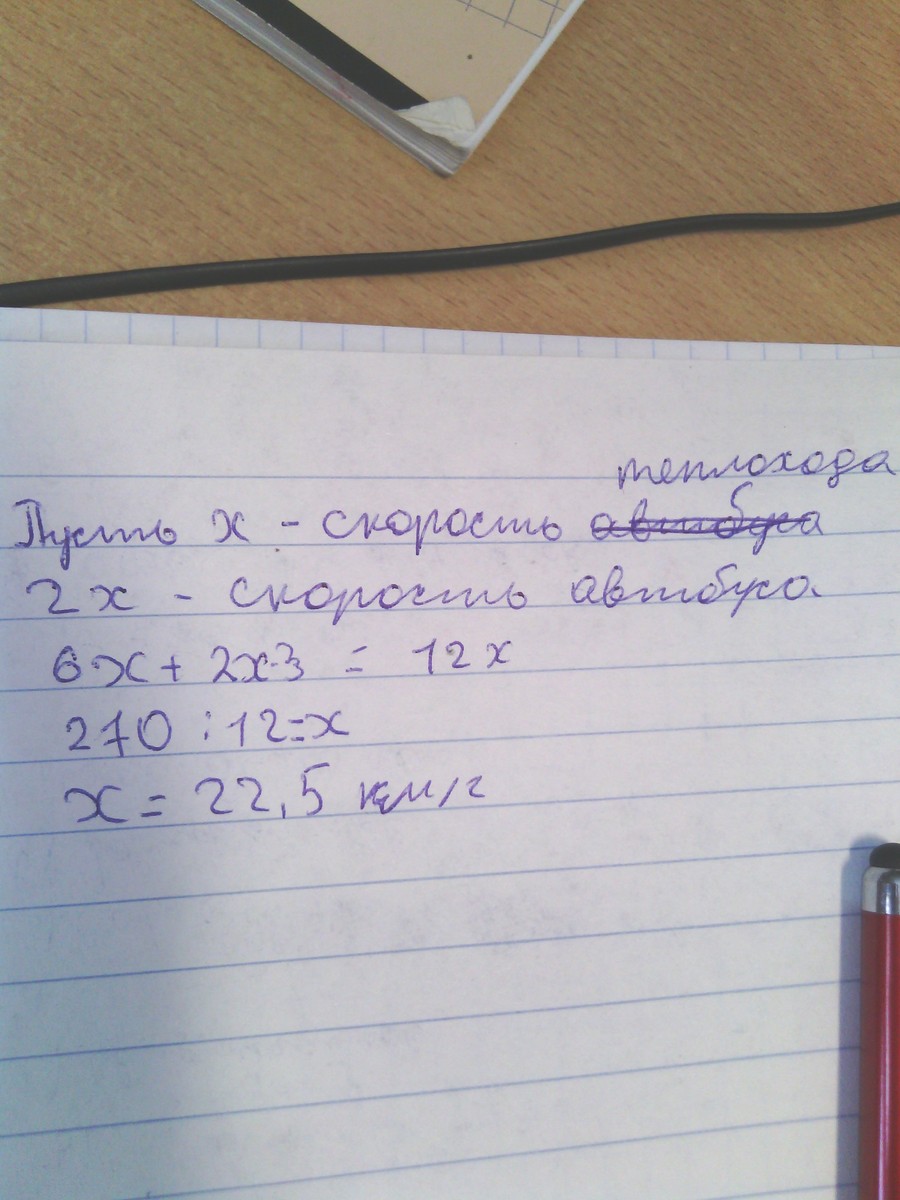 теплохода
Пусть x - скорость автобуса
2x - скорость автобуса.
6x + 2x·3 = 12x
270 : 12 = x
x = 22,5 км/г